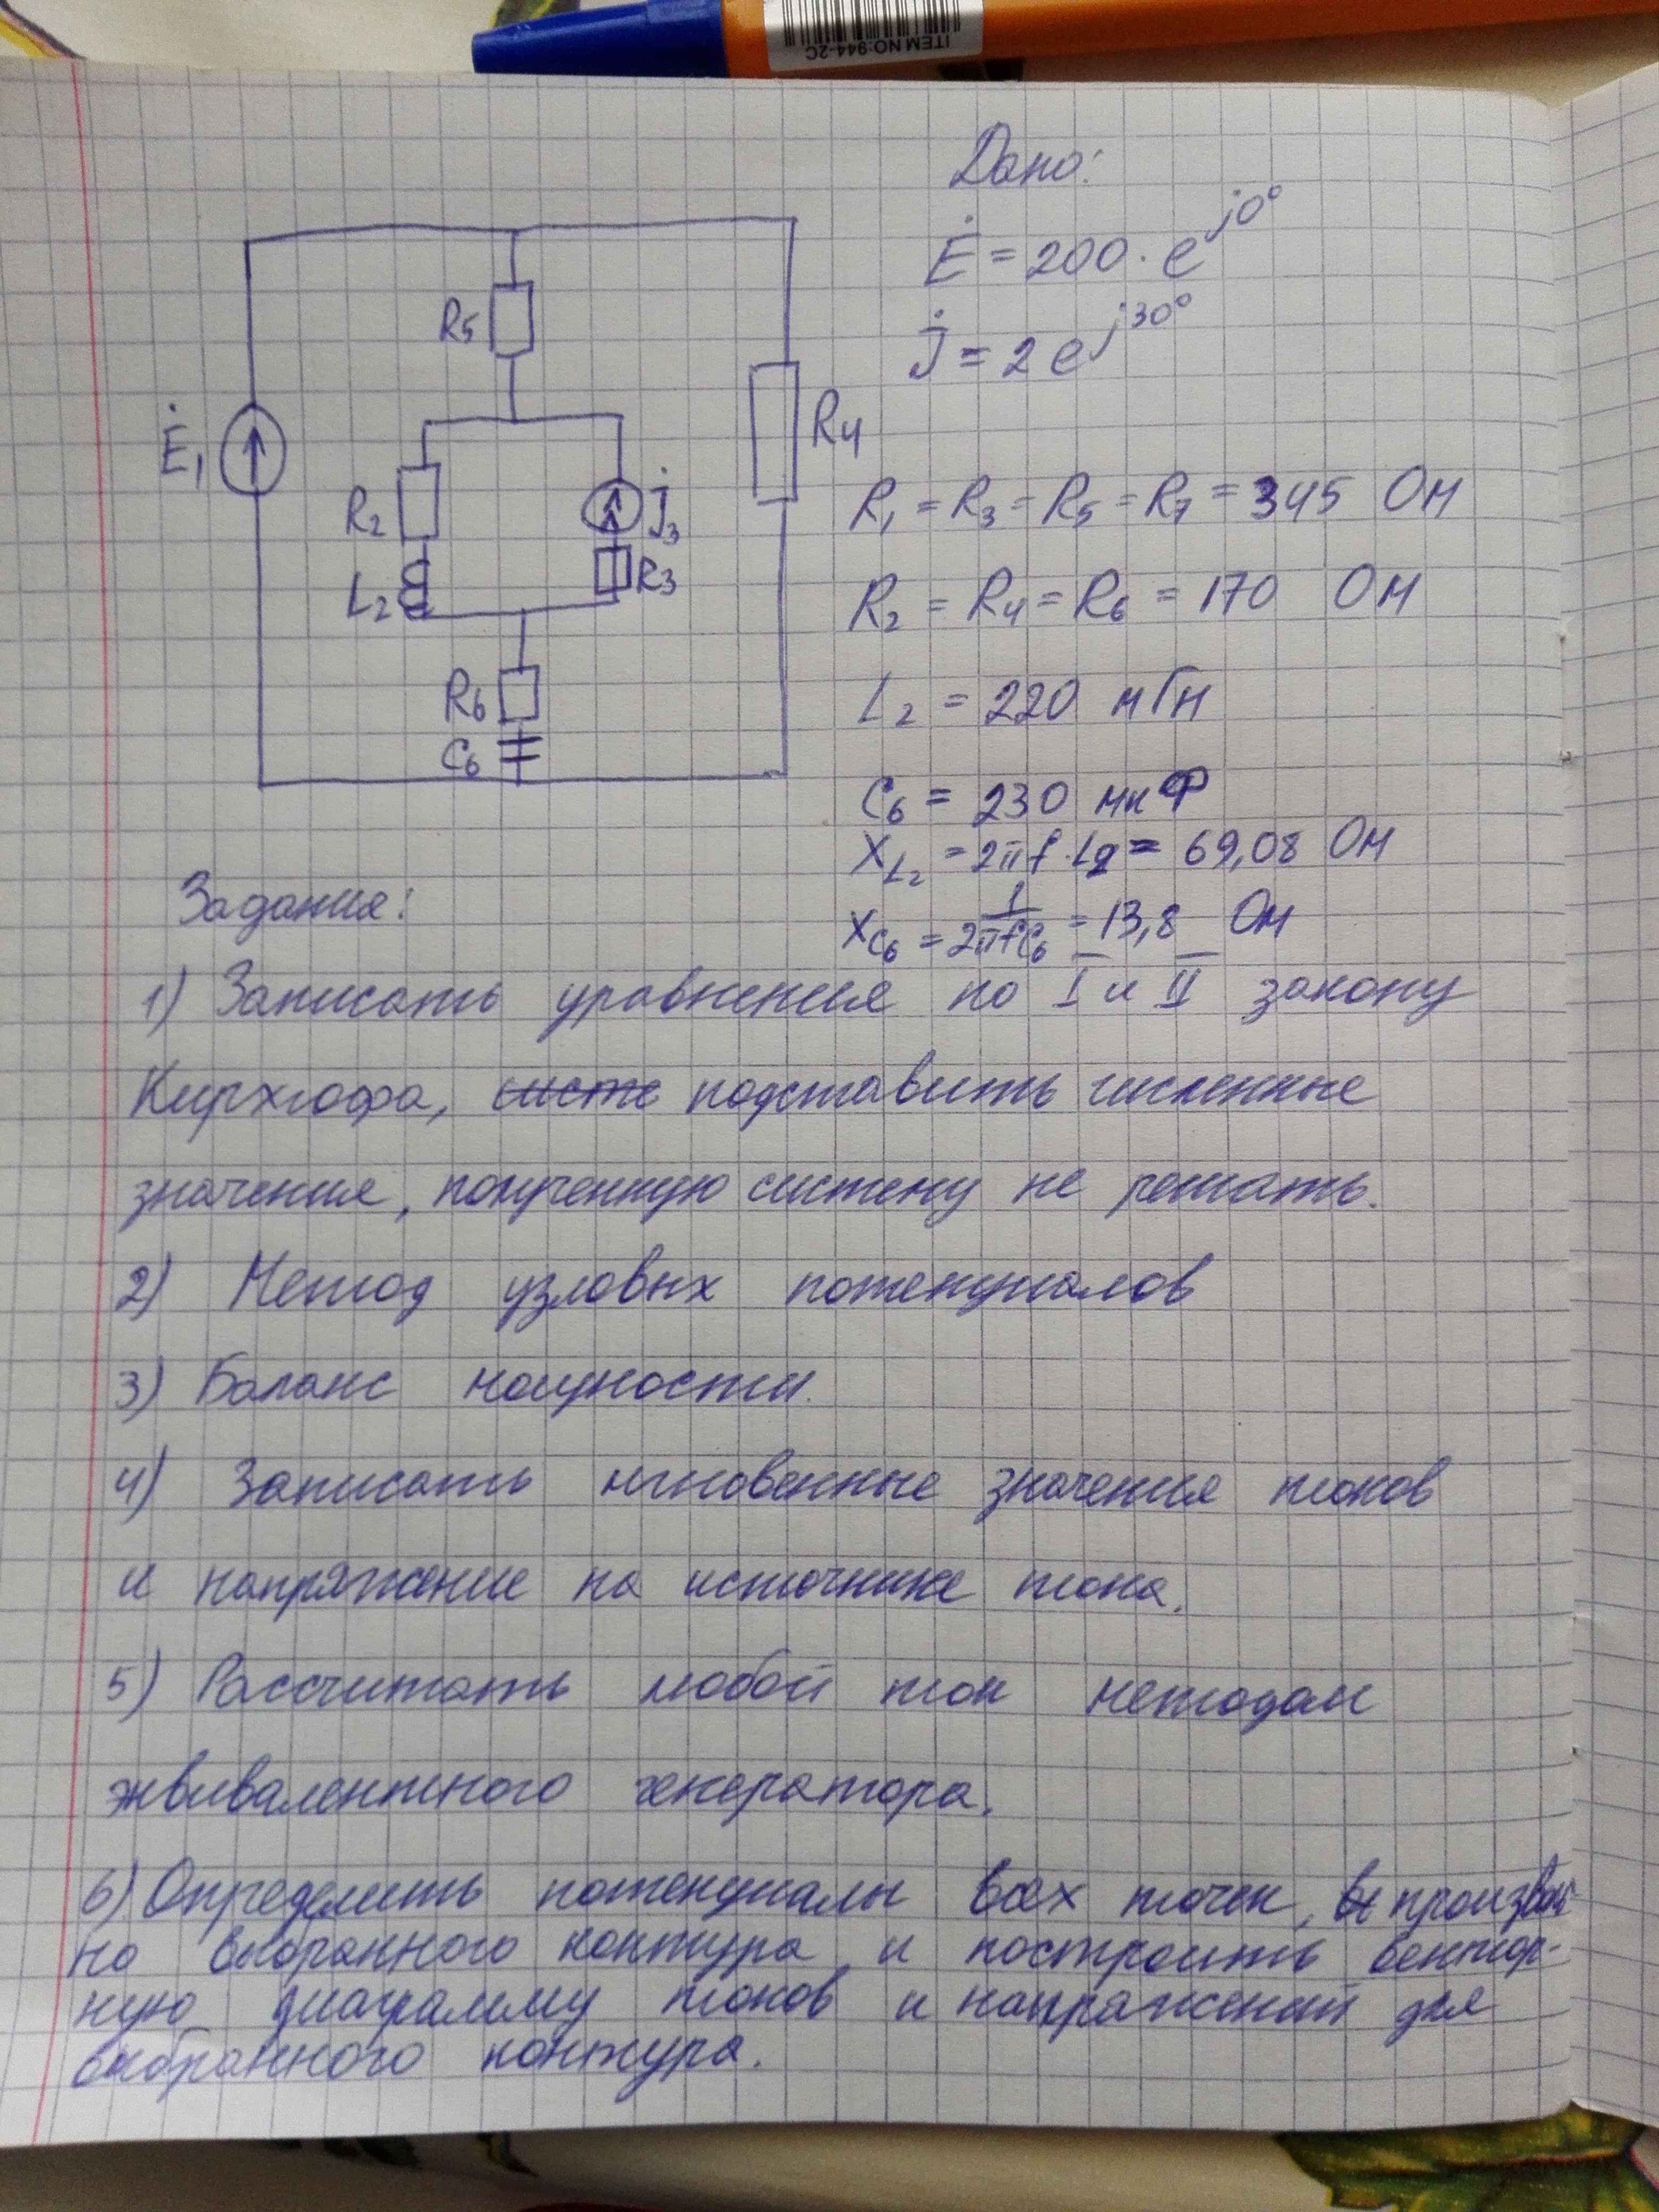 ITEM NO:944-2C
Дано:
Ė = 200 · e^j0°
J̇ = 2 e^j30°
R5
Ė1
R4
R2
J̇3
L2
R3
R6
C6
R1 = R3 = R5 = R7 = 345 Ом
R2 = R4 = R6 = 170 Ом
L2 = 220 мГн
C6 = 230 мкФ
XL2 = 2πf·L2 = 69,08 Ом
XC6 = 1/2πfC6 = 13,8 Ом
Задания:
1) Записать уравнения по I и II закону
Кирхгофа, систе подставить численные
значения, полученную систему не решать.
2) Метод узловых потенциалов
3) Баланс мощности.
4) Записать мгновенные значения токов
и напряжение на источнике тока.
5) Рассчитать любой ток методом
эквивалентного генератора.
6) Определить потенциалы всех точек, произволь
но выбранного контура и построить вектор-
ную диаграмму токов и напряжений для
выбранного контура.